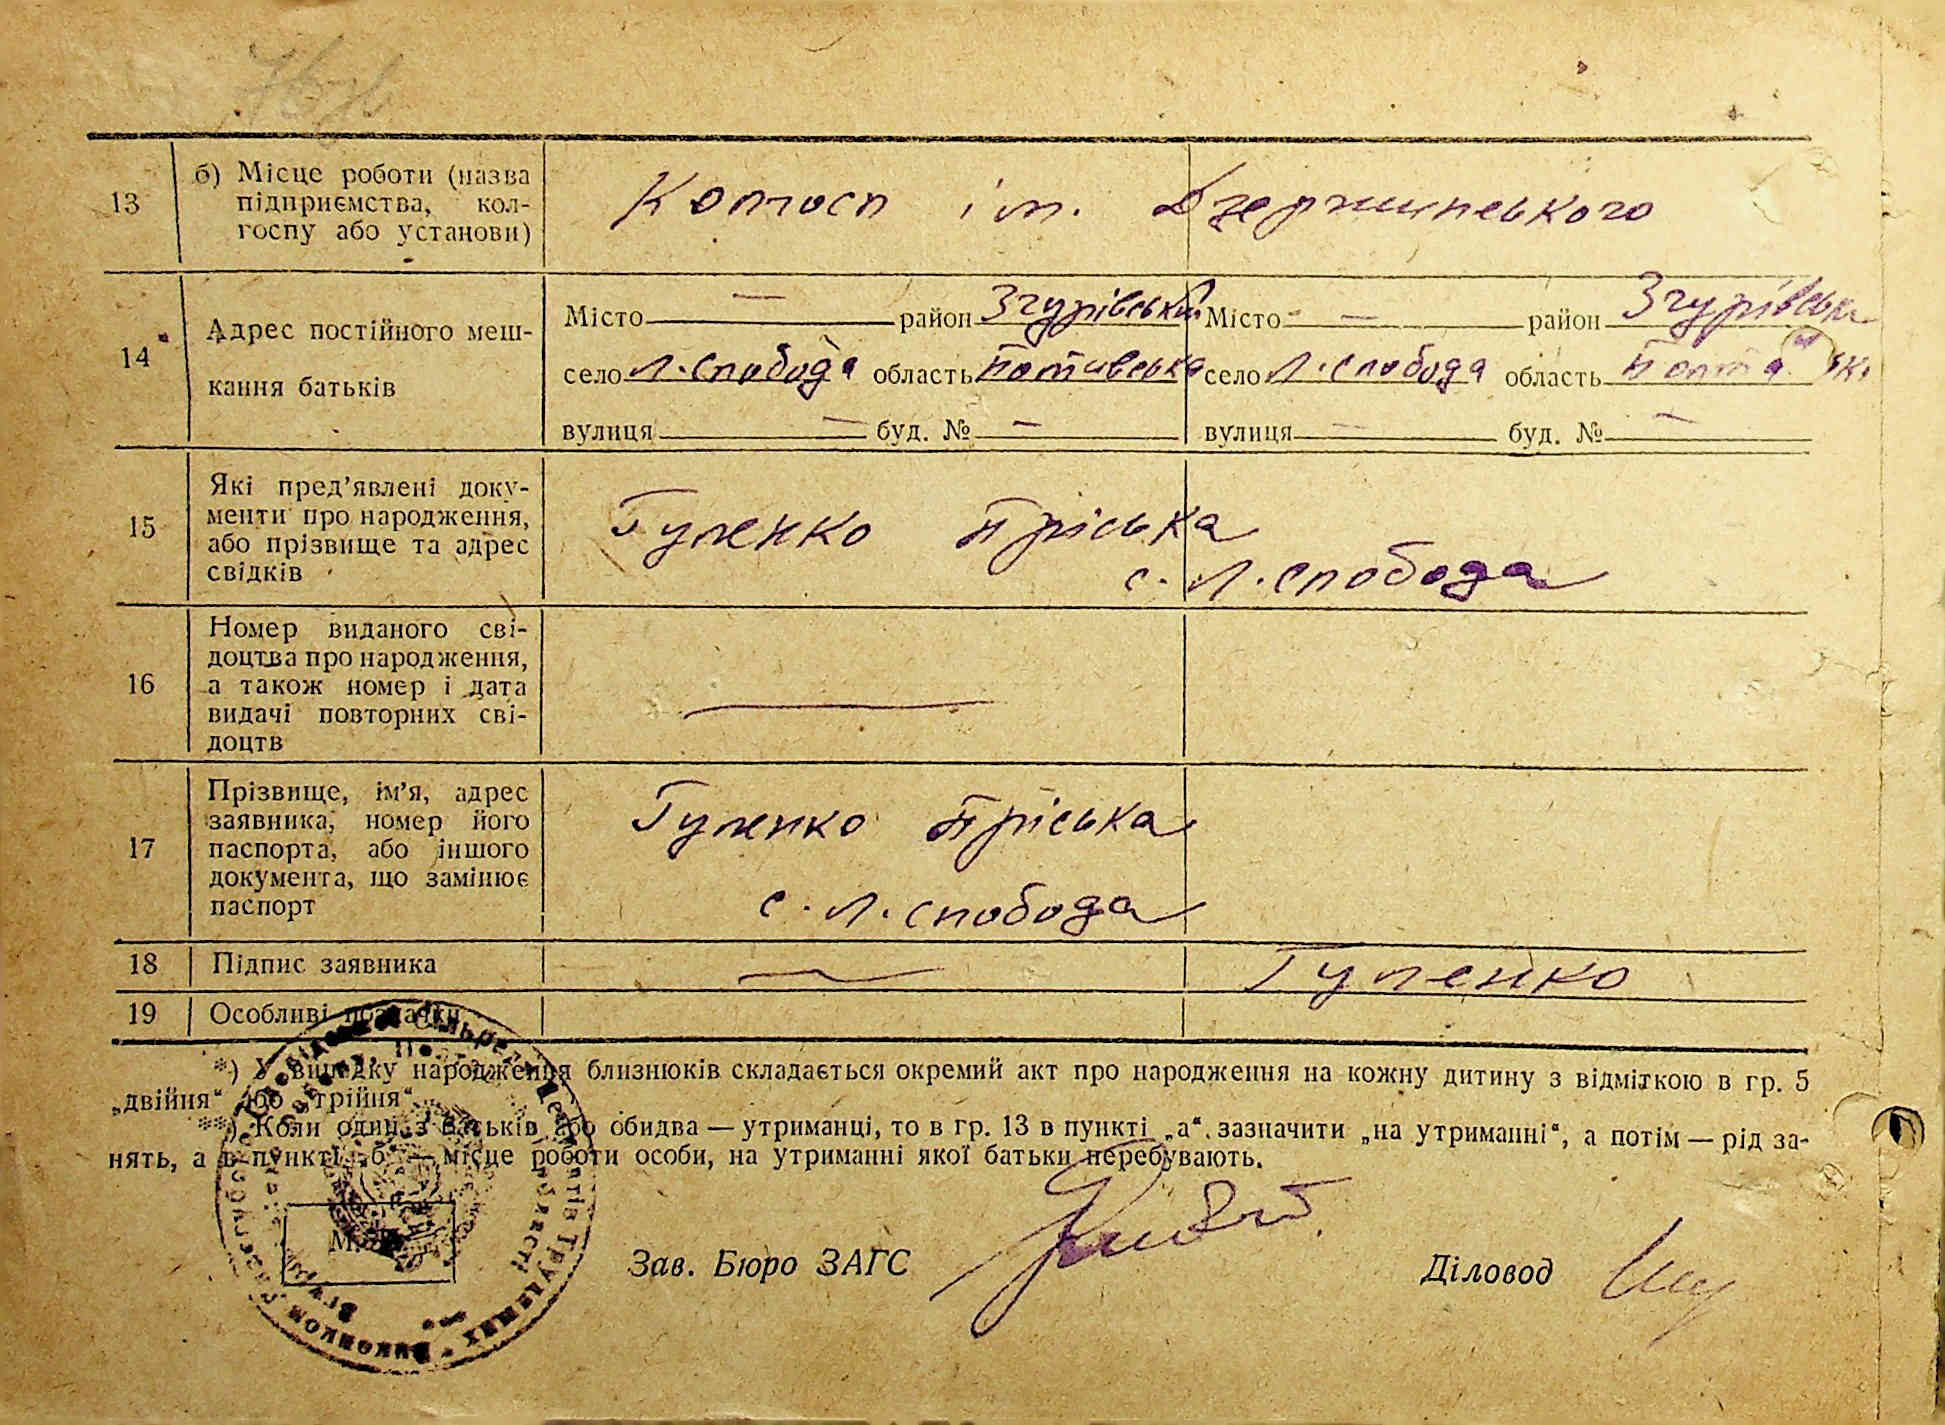 13
б) Місце роботи (назва
підприємства, кол-
госпу або установи)
Колгосп ім. Дзержинського
14
Адрес постійного меш-
кання батьків
Місто — район Згурівський
село Л. Слобода область Полтавська
вулиця — буд. № —
Місто — район Згурівськ
село Л. Слобода область
вулиця — буд. № —
15
Які пред’явлені доку-
менти про народження,
або прізвище та адрес
свідків
Гуленко Пріська
с. Л. Слобода
16
Номер виданого сві-
доцтва про народження,
а також номер і дата
видачі повторних сві-
доцтв
—
17
Прізвище, ім’я, адрес
заявника, номер його
паспорта, або іншого
документа, що замінює
паспорт
Гуленко Пріська
с. Л. Слобода
18
Підпис заявника
— Гуленко
19
Особливі позначки
*) У випадку народження близнюків складається окремий акт про народження на кожну дитину з відміткою в гр. 5
„двійня“ або „трійня“.
**) Коли один з батьків або обидва — утриманці, то в гр. 13 в пункті „а“ зазначити „на утриманні“, а потім — рід за-
нять, а в пункті „б“ — місце роботи особи, на утриманні якої батьки перебувають.
Зав. Бюро ЗАГС
Діловод